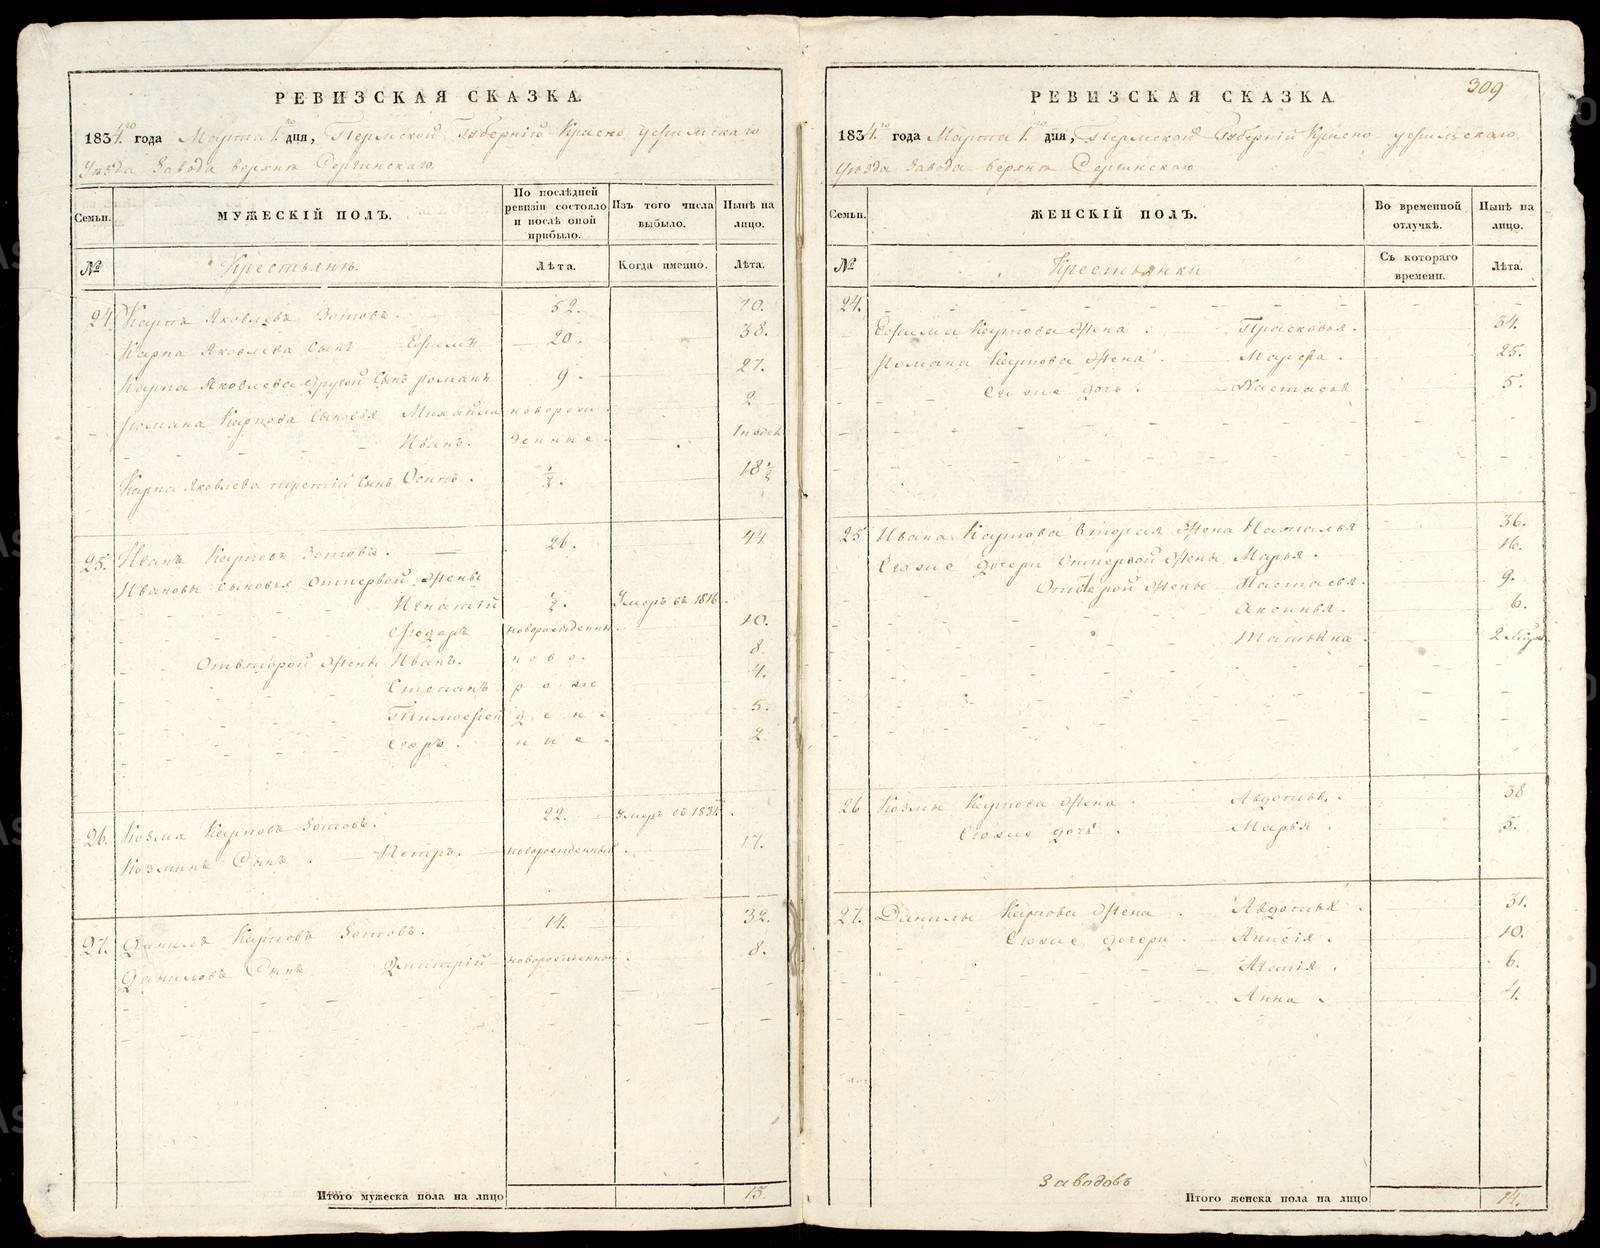 РЕВИЗСКАЯ СКАЗКА.
1834го года Марта 1го дня, Пермской Губернiи Красно уфимскаго
Уѣзда Завода верхнѣ Сергинскаго
Семьи.
МУЖЕСКIЙ ПОЛЪ.
По послѣдней
ревизiи состояло
и послѣ оной
прибыло.
Изъ того числа
выбыло.
Нынѣ на
лицо.
№ Крестьянѣ. Лѣта. Когда именно. Лѣта.
24. Карпъ Яковлевъ Зотовъ. 52. 70.
Карпа Яковлева сынъ Ефимъ 20. 38.
Карпа Яковлева другой сынъ Романъ 9. 27.
Романа Карпова сыновья Михайла новорож 2
Иванъ. денные 1 недѣл
Карпа Яковлева третiй сынъ Осипъ. ½. 18½
25. Иванъ Карповъ Зотовъ. 26. 44
Ивановы сыновья отпервой жены
Игнатiй ½. Умеръ въ 1816.
Федоръ новорожденны. 10.
Отвторой жены Иванъ. ново. 8.
Степанъ рож 4.
Тимофей ден. 5.
Егоръ. ные. 2
26. Козма Карповъ Зотовъ. 22. Умеръ въ 1831.
Козминъ Сынъ. Петръ. новорожденный. 17.
27. Данила Карповъ Зотовъ. 14. 32.
Даниловъ Сынъ Дмитрiй новорожденной. 8.
Итого мужеска пола на лицо 13.
309
РЕВИЗСКАЯ СКАЗКА.
1834го года Марта 1го дня, Пермской Губернiи Красно уфимскаго
Уѣзда Завода верхнѣ Сергинскаго
Семьи.
ЖЕНСКIЙ ПОЛЪ.
Во временной
отлучкѣ.
Нынѣ на
лицо.
№ Крестьянки
Съ котораго
времени.
Лѣта.
24.
Ефима Карпова жена. Прасковья. 34.
Романа Карпова жена. Марфа. 25.
Ево же дочь. Настасья 5.
25 Ивана Карпова вторая жена Наталья 36.
Ево же дочери отпервой жены Марья. 16.
Отвторой жены Настасья. 9.
Аксинья. 6.
Татьяна. 2 мѣсяц
26 Козмы Карпова жена. Авдотья. 38
Ево же дочь. Марья. 5.
27. Данилы Карпова жена. Авдотья 31.
Ево же дочери. Анисiя. 10.
Агафiя. 6.
Анна. 4.
Заводовъ
Итого женска пола на лицо 14.